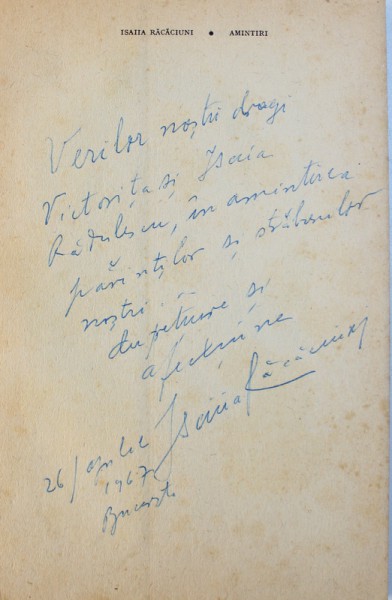 ISAIIA RĂCĂCIUNI • AMINTIRI
Verilor noștri dragi
Victorița și Isaia
Rădulescu, în amintirea
părinților și străbunilor
noștri
cu prețuire și
afecțiune
Isaiia Răcăciuni
26/aprilie
1967
București